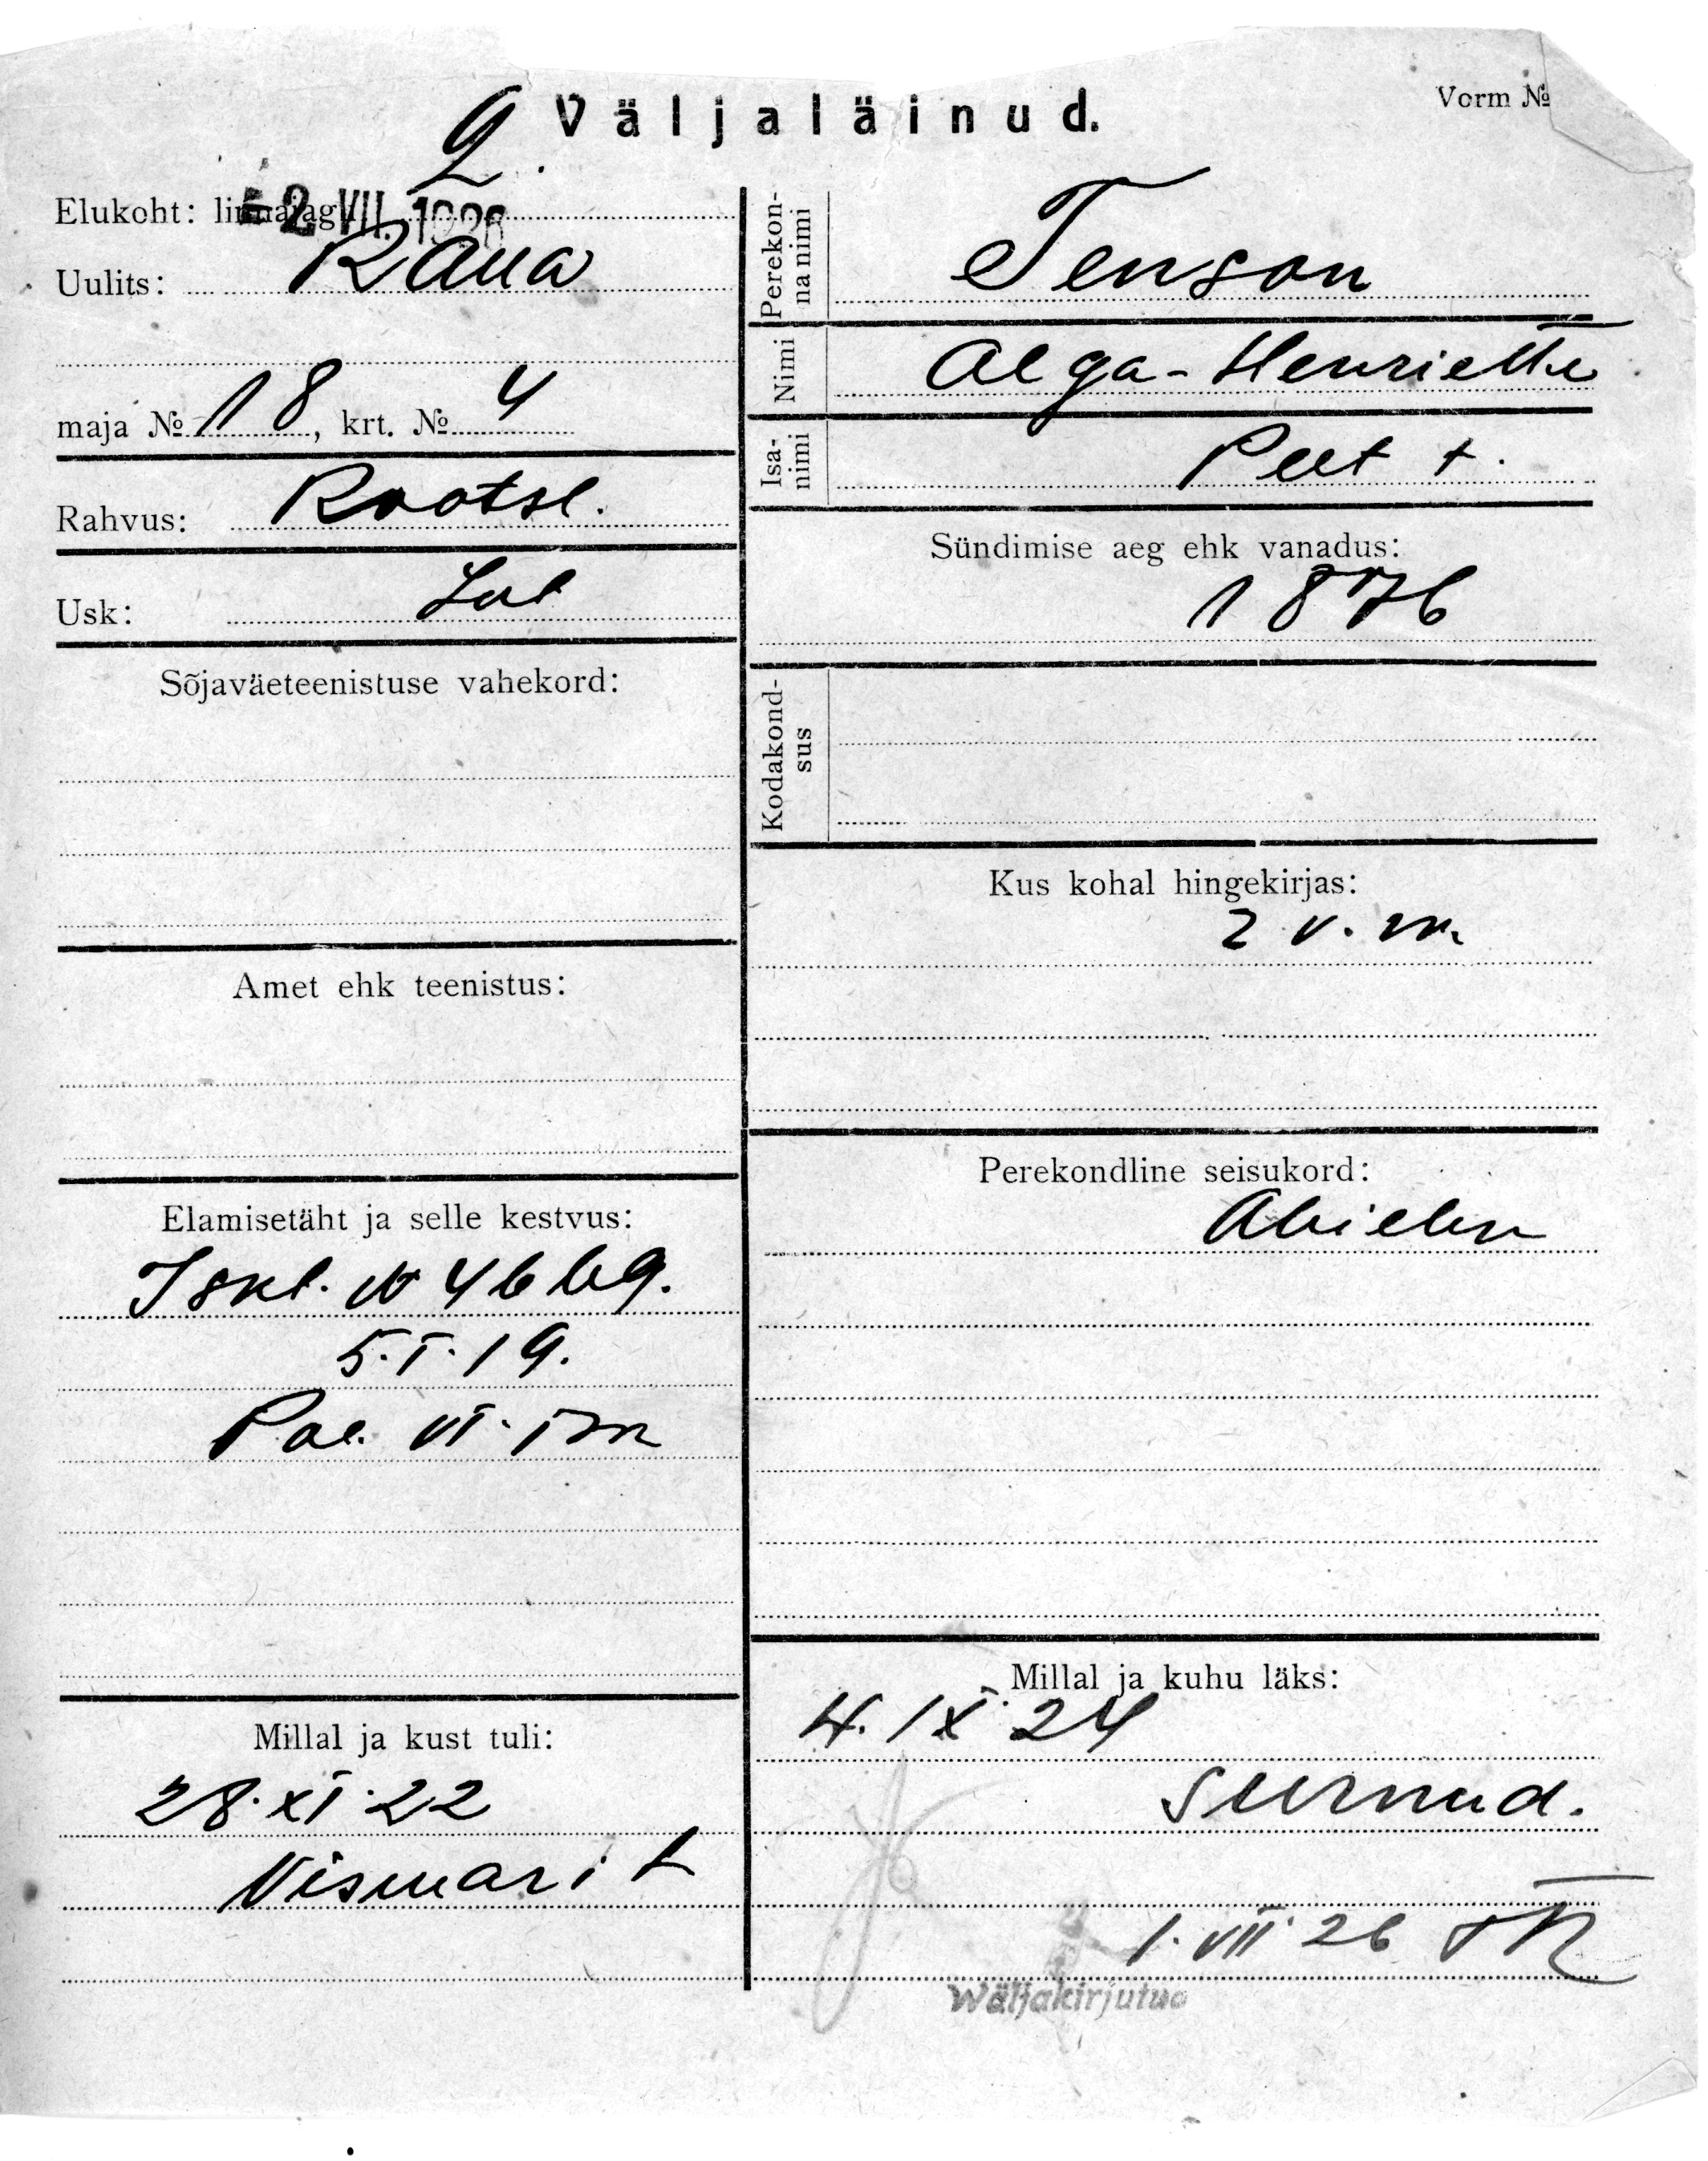 Väljaläinud.
Vorm №
2.
Elukoht: linnajagu
2 VII. 1926
Uulits: Raua
maja № 18, krt. № 4
Rahvus: Rootsl.
Usk: Lut
Sõjaväeteenistuse vahekord:
Amet ehk teenistus:
Elamisetäht ja selle kestvus:
Iskt. № 46 69.
5.I.19.
Pol. VI. Im
Millal ja kust tuli:
28.XI.22
Vismari t
Perekonna nimi
Tenson
Nimi
Alga-Henriette
Isa-nimi
Peet t.
Sündimise aeg ehk vanadus:
1876
Kodakondsus
Kus kohal hingekirjas:
2 v. m.
Perekondline seisukord:
Abielu
Millal ja kuhu läks:
4.IX.24
surnud.
1.VII 26
Wäljakirjutud